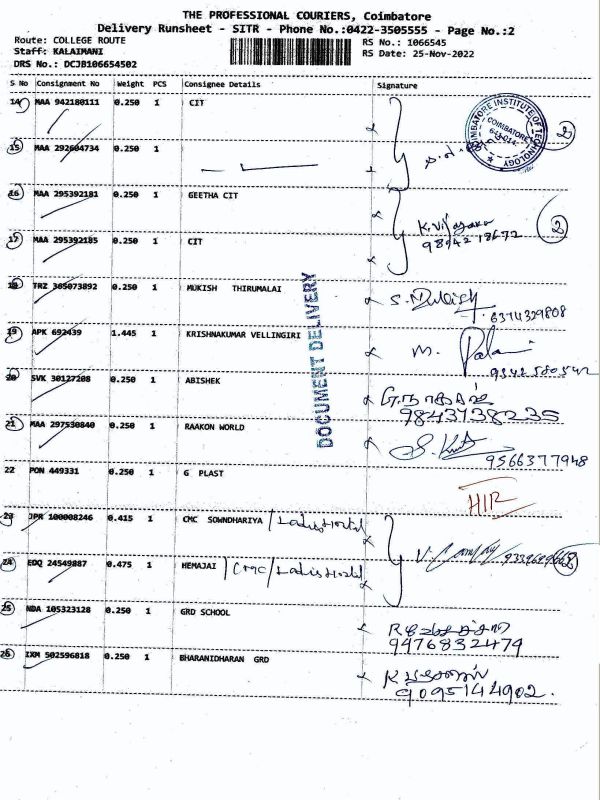 THE PROFESSIONAL COURIERS, Coimbatore
Delivery Runsheet - SITR - Phone No.:0422-3505555 - Page No.:2
Route: COLLEGE ROUTE
Staff: KALAIMANI
DRS No.: DCJB106654502
RS No.: 1066545
RS Date: 25-Nov-2022
S No Consignment No Weight PCS Consignee Details Signature
14 MAA 942180111 0.250 1 CIT
COIMBATORE INSTITUTE OF TECHNOLOGY
COIMBATORE
641 014
2
15 MAA 292604734 0.250 1
16 MAA 295392181 0.250 1 GEETHA CIT
K. Vijaya
9894218672
2
17 MAA 295392185 0.250 1 CIT
18 TRZ 305073892 0.250 1 MUKISH THIRUMALAI
6374329808
19 APK 692439 1.445 1 KRISHNAKUMAR VELLINGIRI M.
DOCUMENT DELIVERY
20 SVK 30127208 0.250 1 ABISHEK
9843738235
21 MAA 297530840 0.250 1 RAAKON WORLD
9566377948
22 PON 449331 0.250 1 G PLAST
HIR
23 JPR 100008246 0.415 1 CMC SOWNDHARIYA / Ladies Hostel
24 EDQ 24549887 0.475 1 HEMAJAI / CMC / Ladies Hostel
25 NDA 105323128 0.250 1 GRD SCHOOL
9476832479
26 IXM 502596818 0.250 1 BHARANIDHARAN GRD
9095144902.